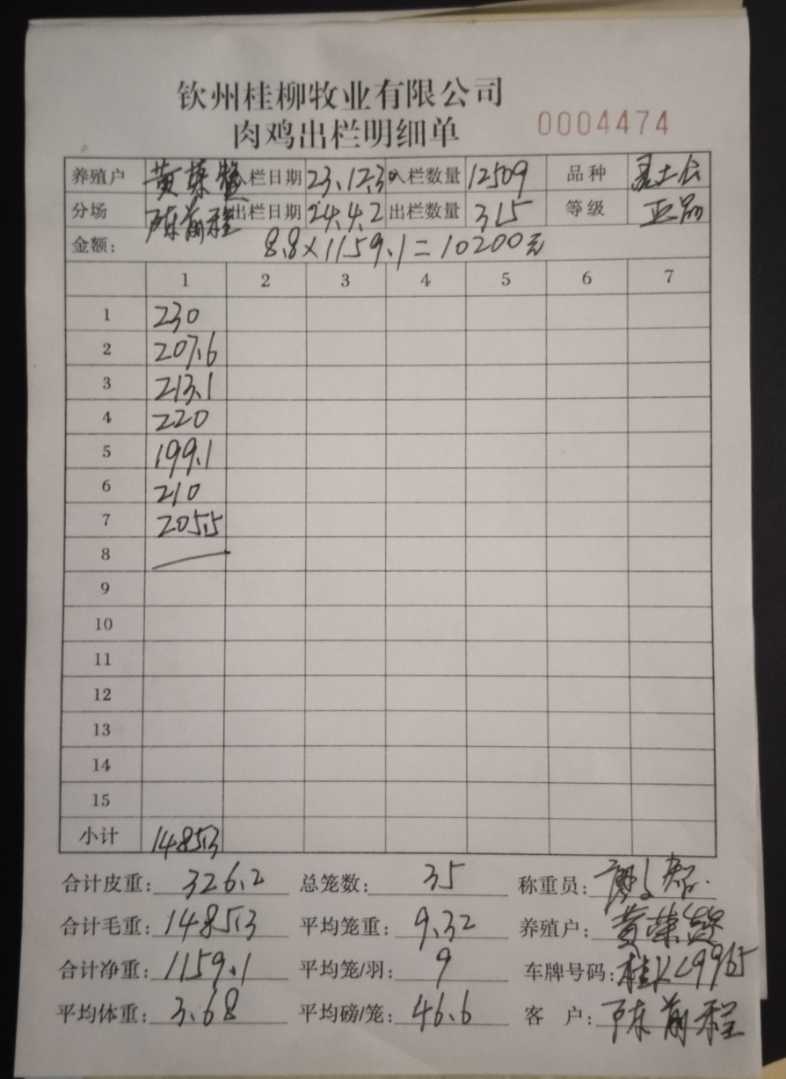 钦州桂柳牧业有限公司
肉鸡出栏明细单 0004474
养殖户 黄荣 栏日期 23.12.30 入栏数量 12509 品种
分场 陈前程 出栏日期 24.4.2 出栏数量 315 等级
金额: 8.8×1159.1=10200元
1 2 3 4 5 6 7
1 230
2 207.6
3 213.1
4 220
5 199.1
6 210
7 205.5
8
9
10
11
12
13
14
15
小计 1485.3
合计皮重: 326.2 总笼数: 35 称重员:
合计毛重: 1485.3 平均笼重: 9.32 养殖户: 黄荣
合计净重: 1159.1 平均笼/羽: 9 车牌号码:
平均体重: 3.68 平均磅/笼: 46.6 客 户: 陈前程